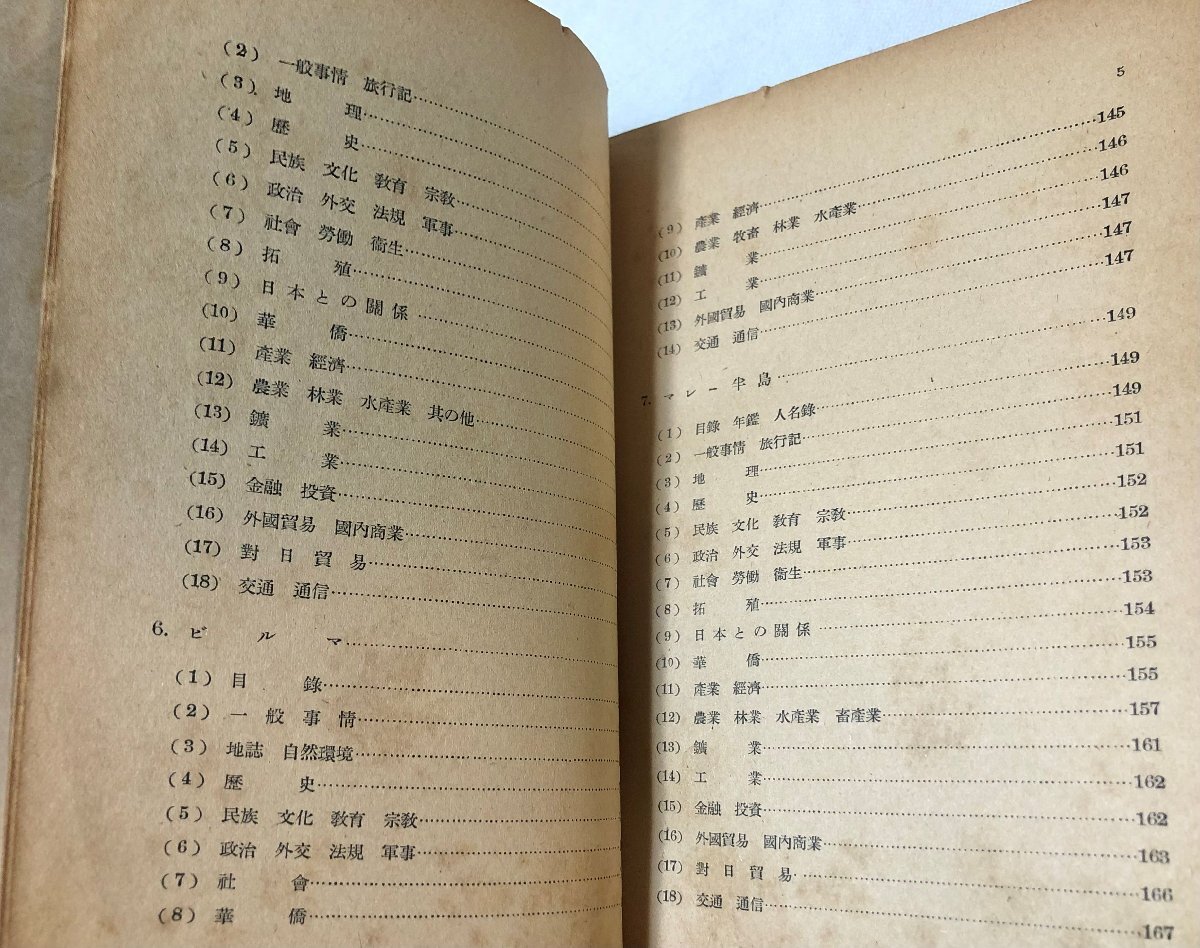 (2) 一般事情 旅行記
(3) 地 理
(4) 歷 史
(5) 民族 文化 敎育 宗敎
(6) 政治 外交 法規 軍事
(7) 社會 勞働 衞生
(8) 拓 殖
(9) 日本との關係
(10) 華 僑
(11) 產業 經濟
(12) 農業 林業 水產業 其の他
(13) 鑛 業
(14) 工 業
(15) 金融 投資
(16) 外國貿易 國內商業
(17) 對日貿易
(18) 交通 通信
6. ビルマ
(1) 目 錄
(2) 一般事情
(3) 地誌 自然環境
(4) 歷 史
(5) 民族 文化 敎育 宗敎
(6) 政治 外交 法規 軍事
(7) 社 會
(8) 華 僑
5
(9) 產業 經濟 145
(10) 農業 牧畜 林業 水產業 146
(11) 鑛 業 146
(12) 工 業 147
(13) 外國貿易 國內商業 147
(14) 交通 通信 147
7. マレー半島 149
(1) 目錄 年鑑 人名錄 149
(2) 一般事情 旅行記 149
(3) 地 理 151
(4) 歷 史 151
(5) 民族 文化 敎育 宗敎 152
(6) 政治 外交 法規 軍事 152
(7) 社會 勞働 衞生 153
(8) 拓 殖 153
(9) 日本との關係 154
(10) 華 僑 155
(11) 產業 經濟 155
(12) 農業 林業 水產業 畜產業 157
(13) 鑛 業 161
(14) 工 業 162
(15) 金融 投資 162
(16) 外國貿易 國內商業 163
(17) 對日貿易 166
(18) 交通 通信 167